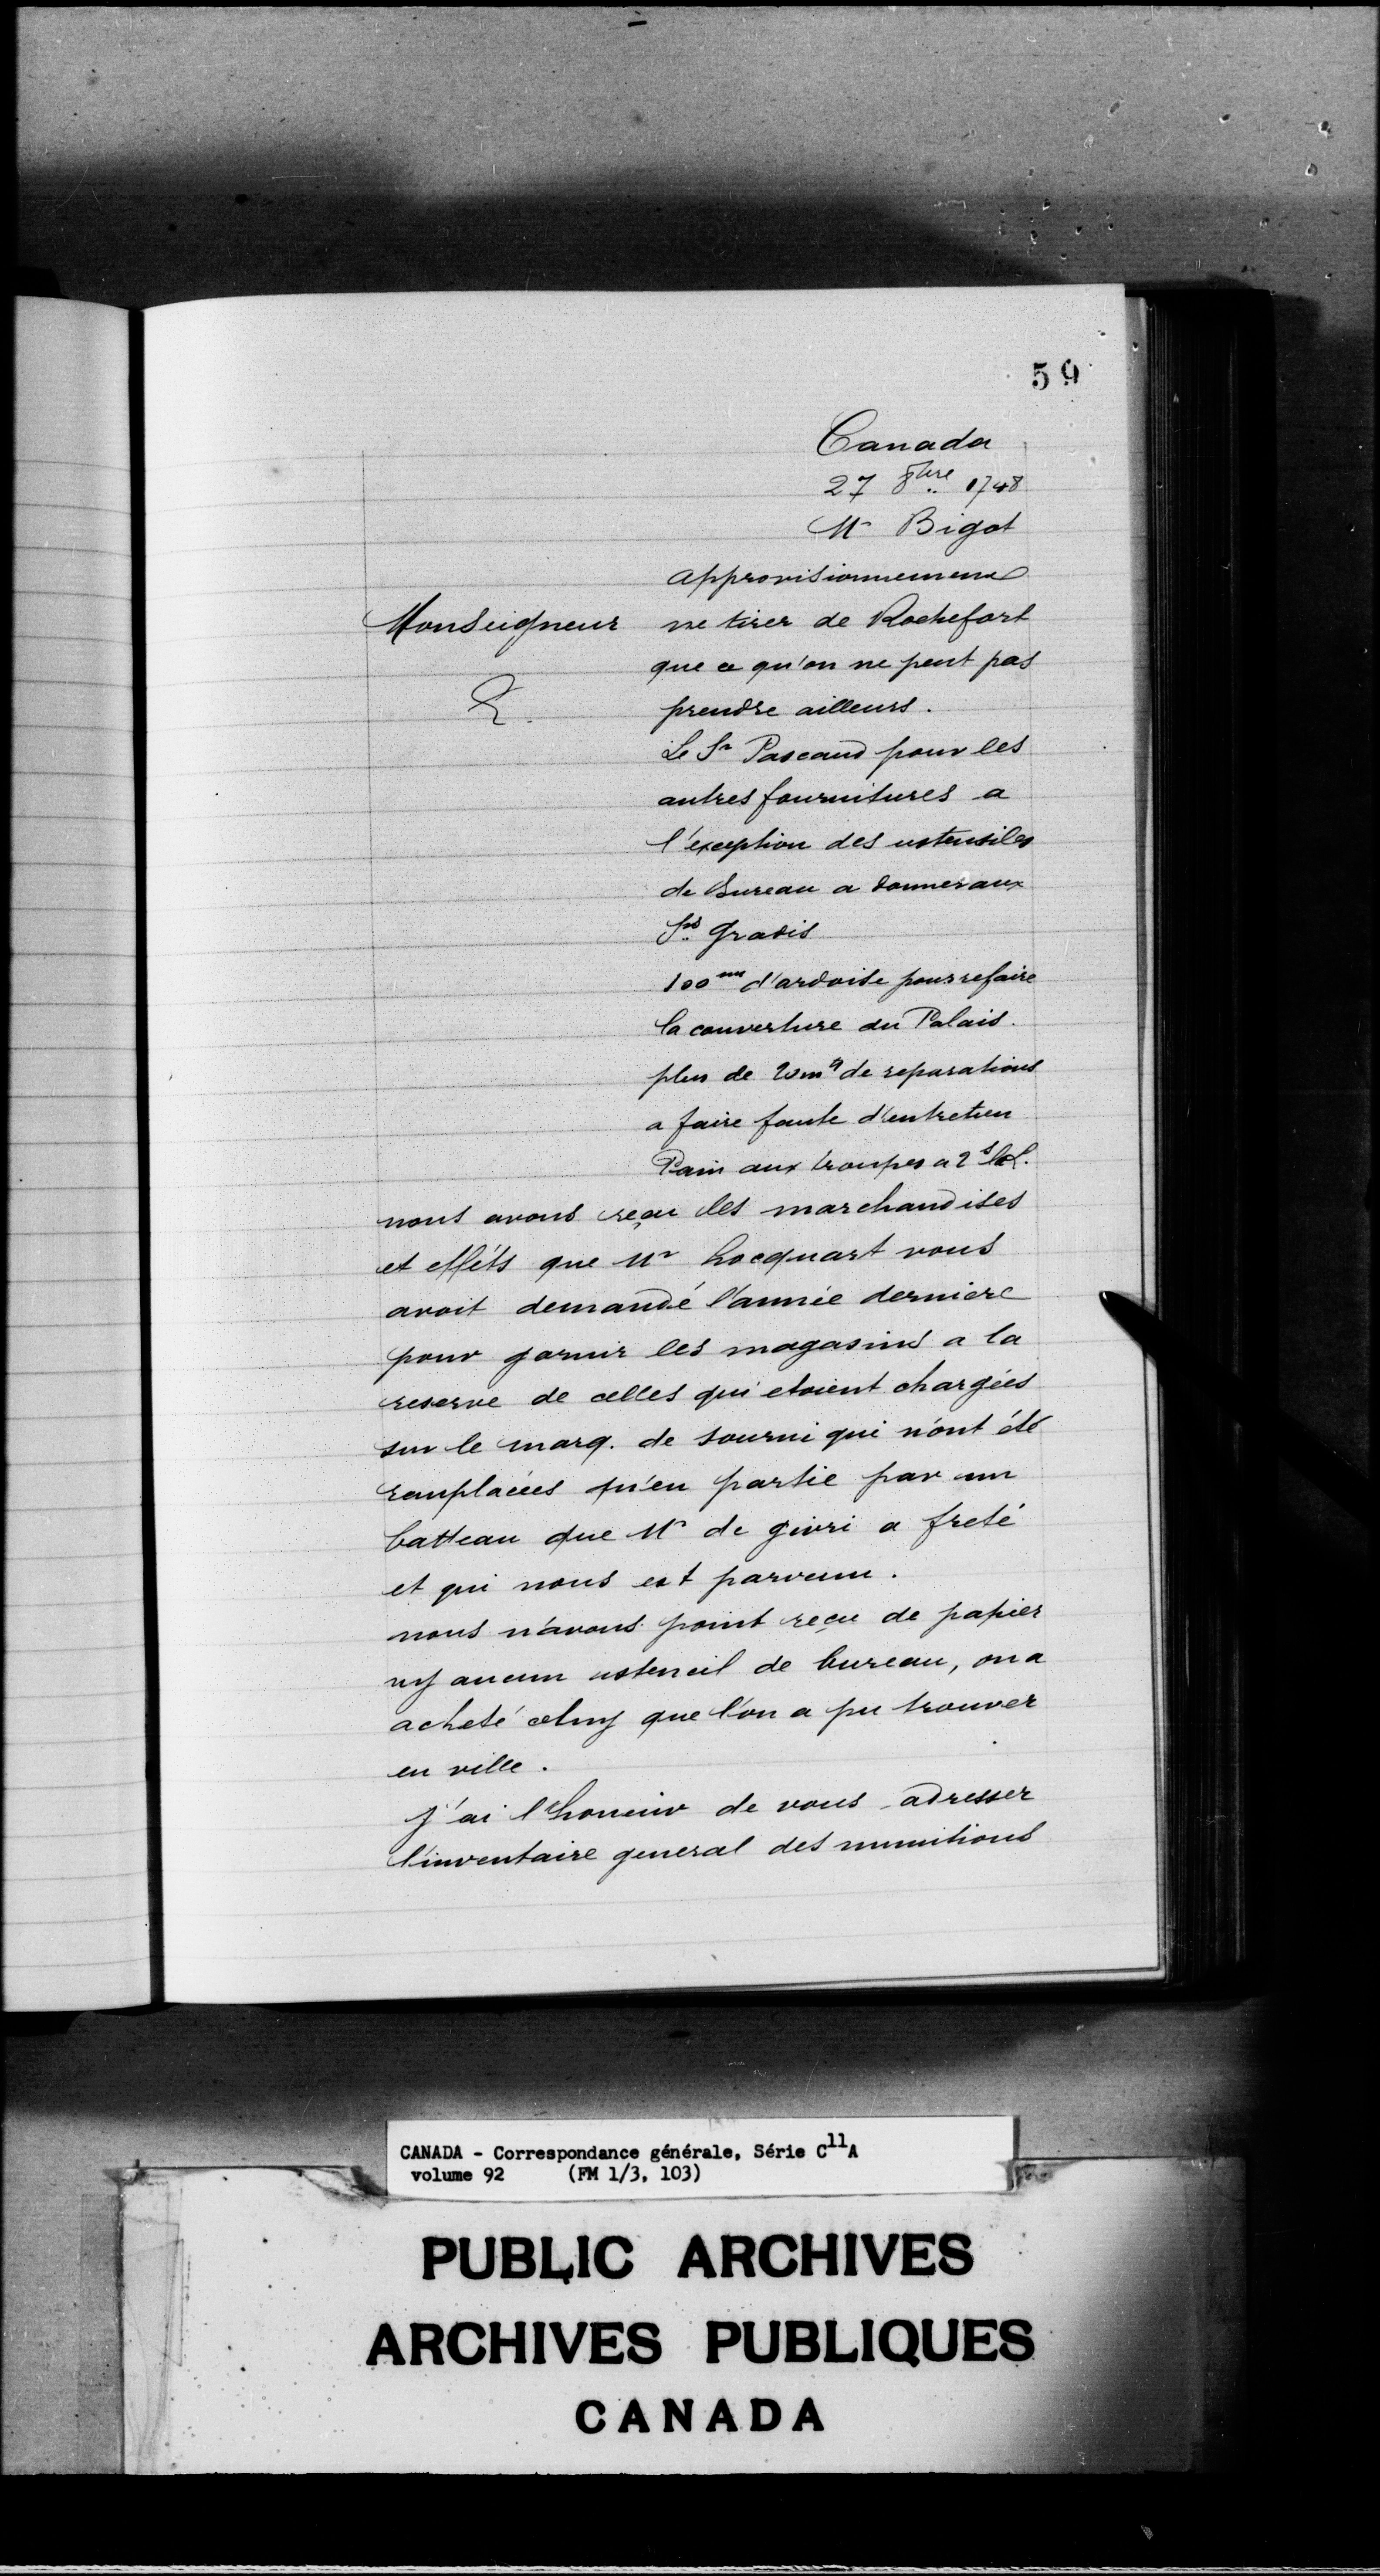 59
Canada
27 8bre 1748
Mr Bigot
approvisionnement
Monseigneur
ne tirer de Rochefort
que ce qu'on ne peut pas
prendre ailleurs.
Le Sr Pascaud pour les
autres fournitures a
l'exception des ustensiles
de bureau a donner aux
Srs Gradis
100m d'ardoise pour refaire
la couverture du Palais.
plus de 20m# de reparations
a faire faute d'entretien
Pain aux troupes a 2s la l.
nous avons reçu les marchandises
et effets que Mr hocquart vous
avoit demandé l'année derniere
pour garnir les magasins a la
reserve de celles qui etoient chargées
sur le marq. de tourni qui n'ont été
remplacées qu'en partie par un
batteau que Mr de givri a freté
et qui nous est parvenu.
nous n'avons point reçu de papier
ny aucun ustencil de bureau, on a
acheté celuy que l'on a pu trouver
en ville.
j'ai l'honeur de vous adresser
l'inventaire general des munitions
CANADA - Correspondance générale, Série C11A
volume 92 (FM 1/3, 103)
PUBLIC ARCHIVES
ARCHIVES PUBLIQUES
CANADA